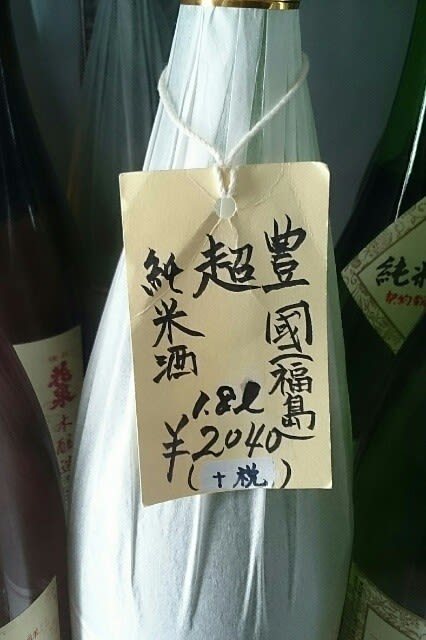 豊國(福島)
超
純米酒
1.8ℓ
¥2040
(+税)
純米
本醸造